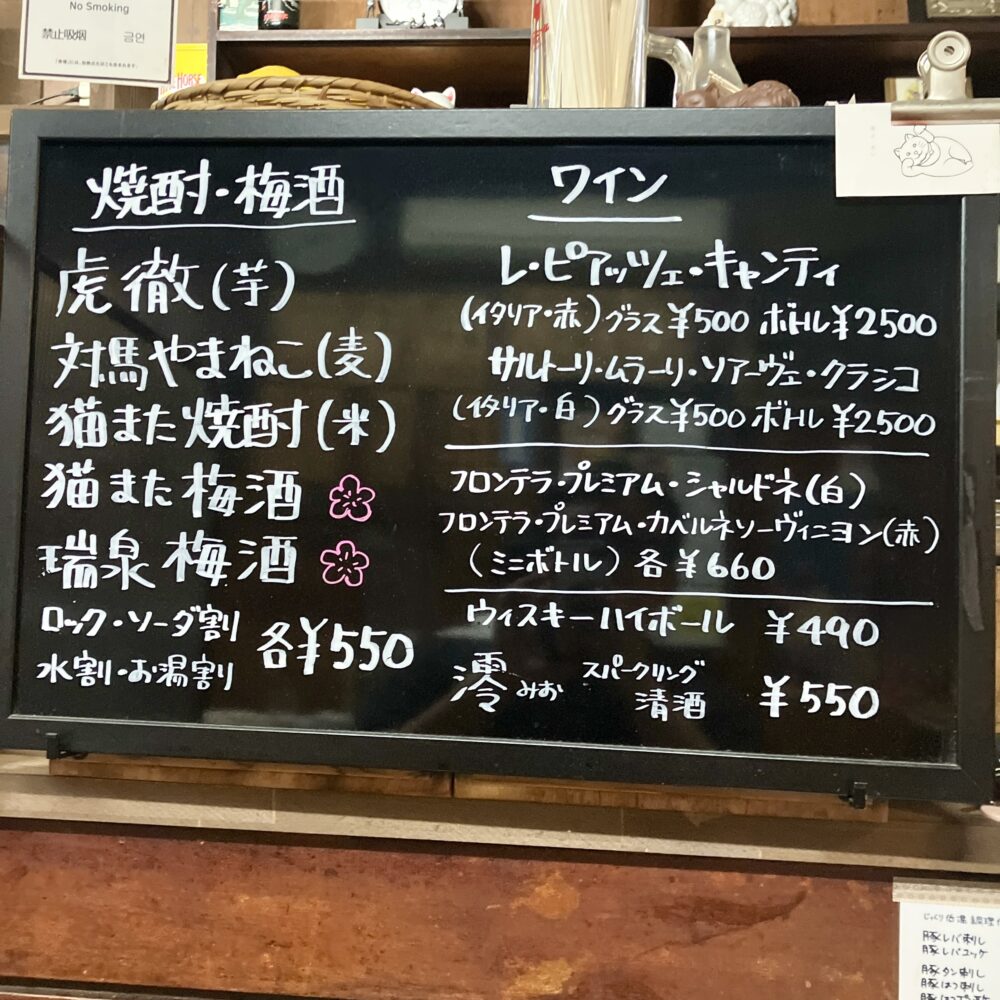 No Smoking
禁止吸烟 금연
HORSE
焼酎・梅酒
虎徹(芋)
対馬やまねこ(麦)
猫また焼酎(米)
猫また梅酒
瑞泉梅酒
ロック・ソーダ割
水割・お湯割
各¥550
ワイン
レ・ピアッツェ・キャンティ
(イタリア・赤)グラス¥500 ボトル¥2500
サルトーリ・ムラーリ・ソアーヴェ・クラシコ
(イタリア・白)グラス¥500 ボトル¥2500
フロンテラ・プレミアム・シャルドネ(白)
フロンテラ・プレミアム・カベルネソーヴィニヨン(赤)
(ミニボトル) 各¥660
ウィスキーハイボール ¥490
澪 みお スパークリング
清酒 ¥550
じっくり低温調理
豚レバ刺し
豚レバユッケ
豚タン刺し
豚はつ刺し